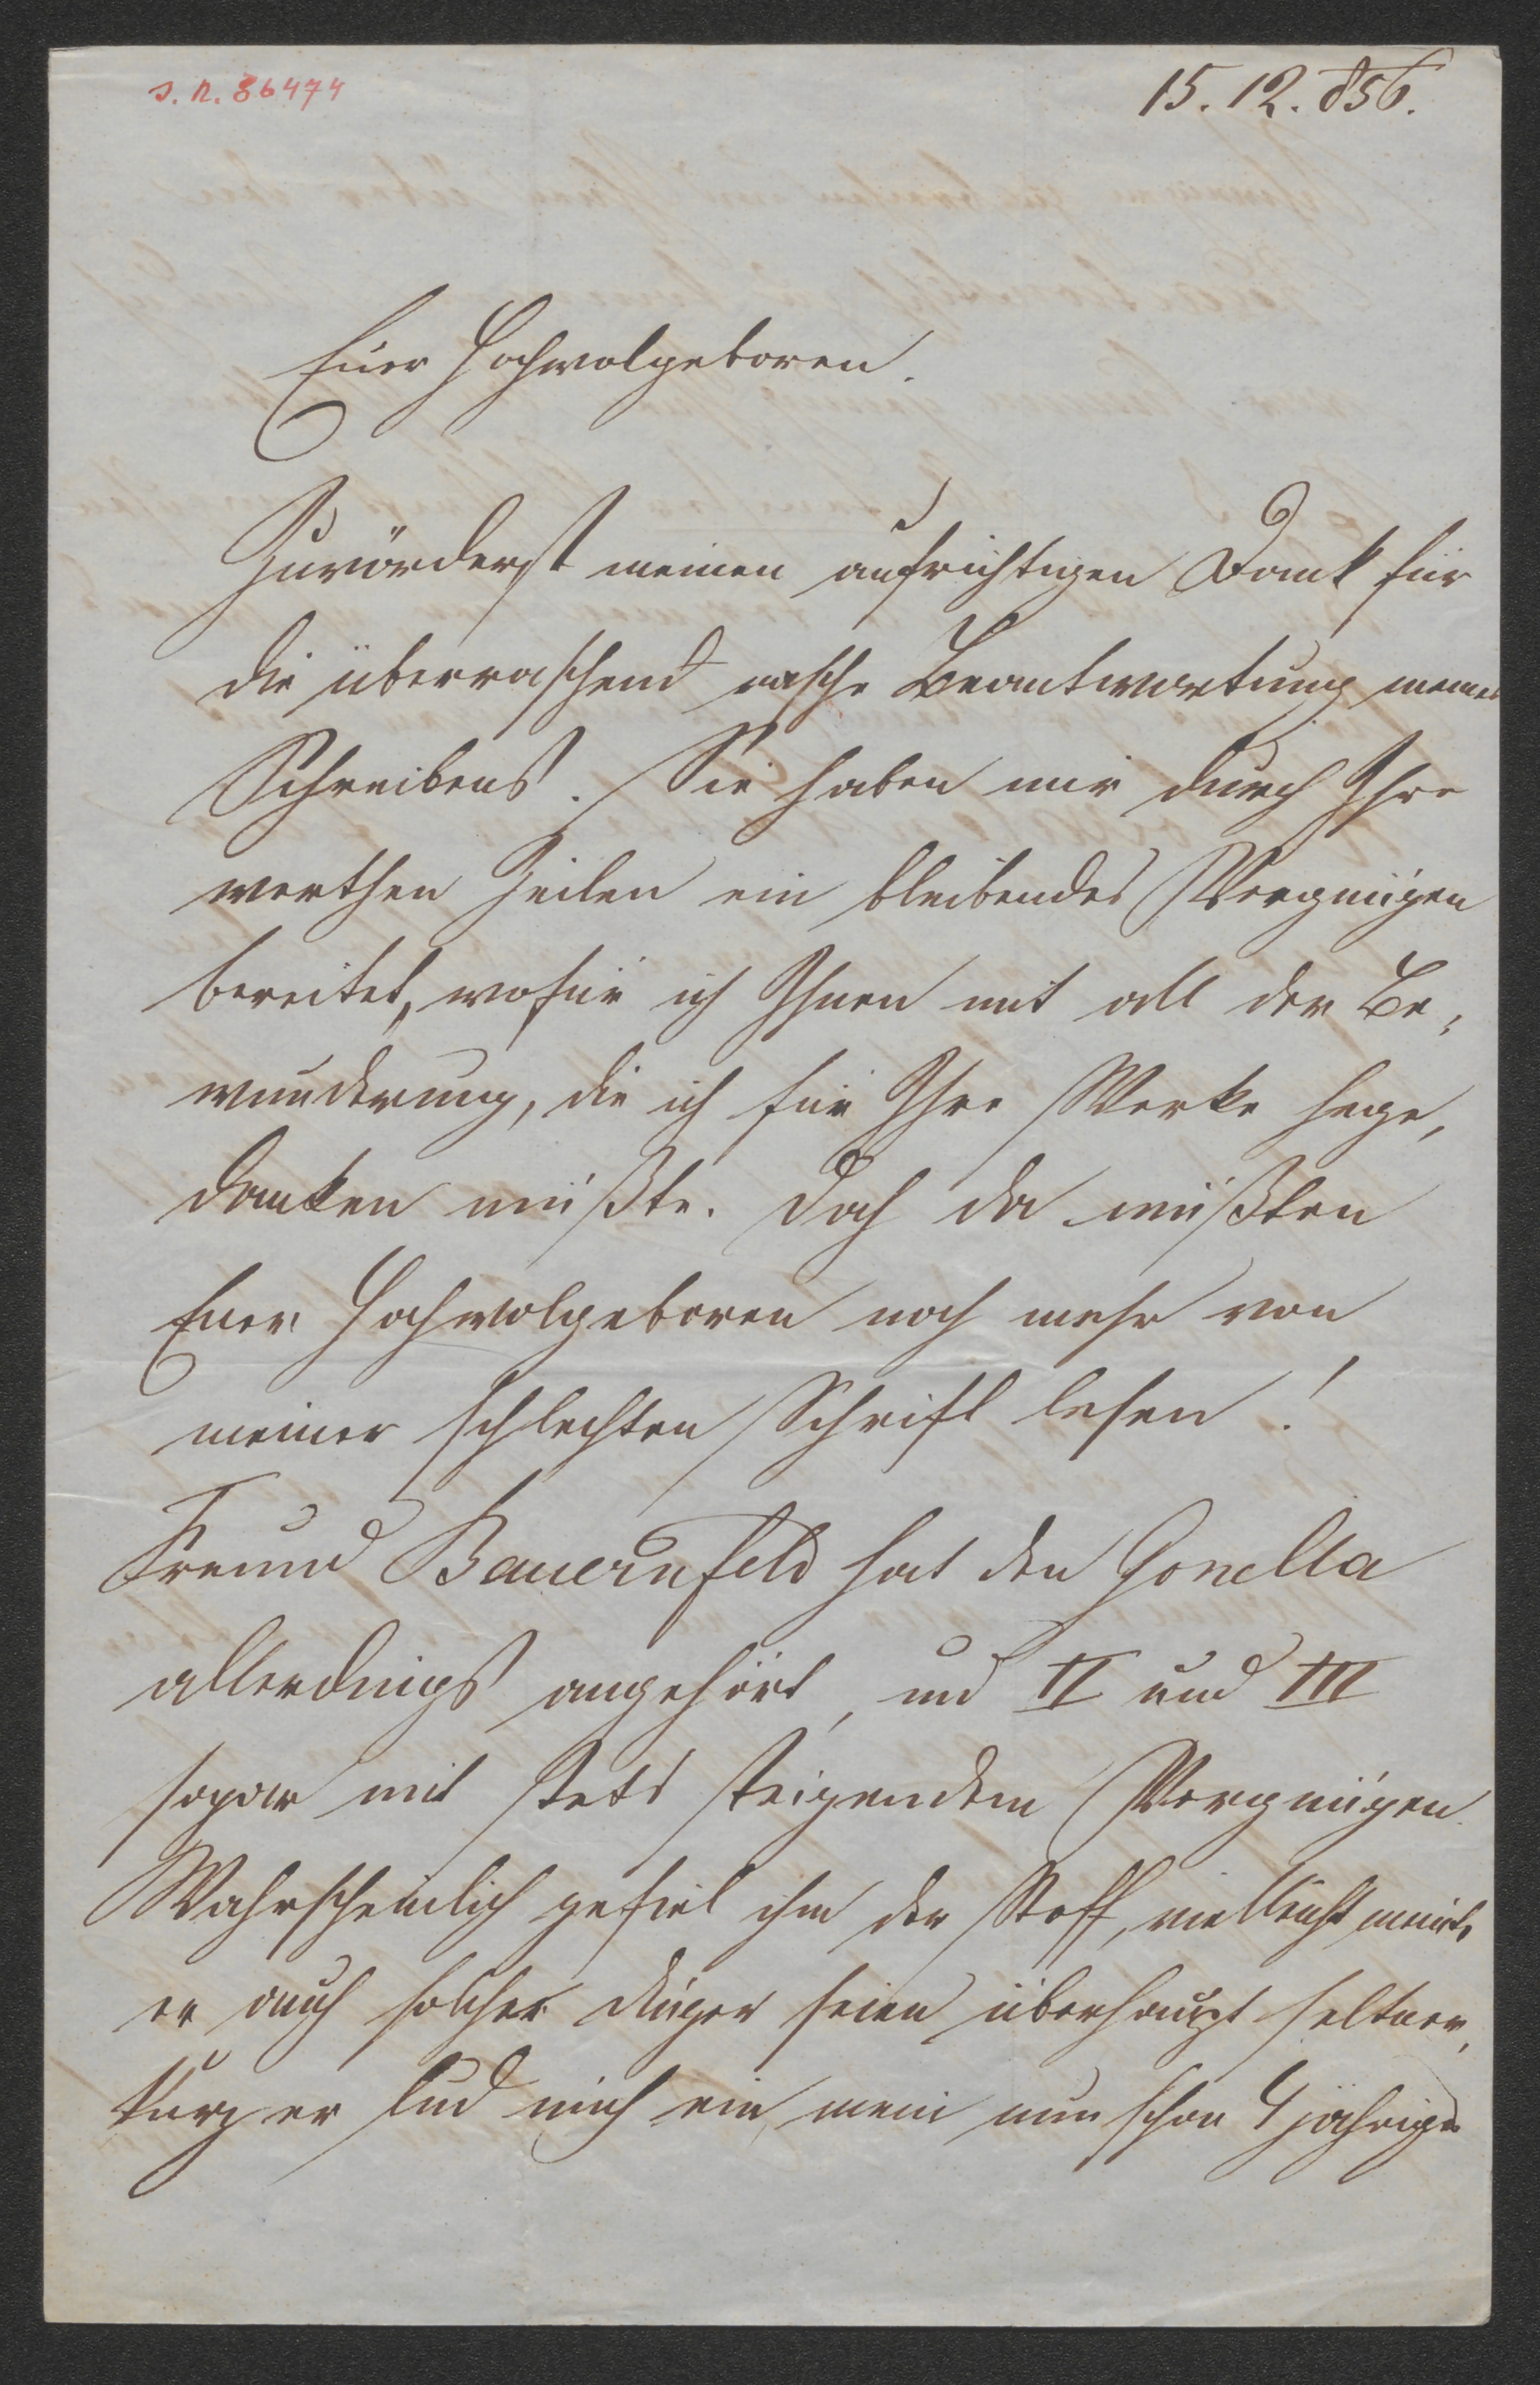 J. N. 86474
15. 12. 856.
Euer Hochwolgeboren.
Zuvörderst meinen aufrichtigen Dank für
die überraschend rasche Beantwortung meines
Schreibens. Sie haben mir durch Ihre
werthen Zeilen ein bleibendes Vergnügen
bereitet, wofür ich Ihnen mit all der Be-
wunderung, die ich für Ihre Werke hege,
danken müßte. Doch da müßten
Euer Hochwolgeboren noch mehr von
meiner schlechten Schrift lesen!
Freund Bauernfeld hat den Gonella
allerdings angehört, und II und III
sogar mit stets steigendem Vergnügen.
Wahrscheinlich gefiel ihm der Stoff, vielleicht meint
er auch solcher Dinger seien überhaupt seltner,
kurz er lud mich ein, mein nun schon 4 jähriges